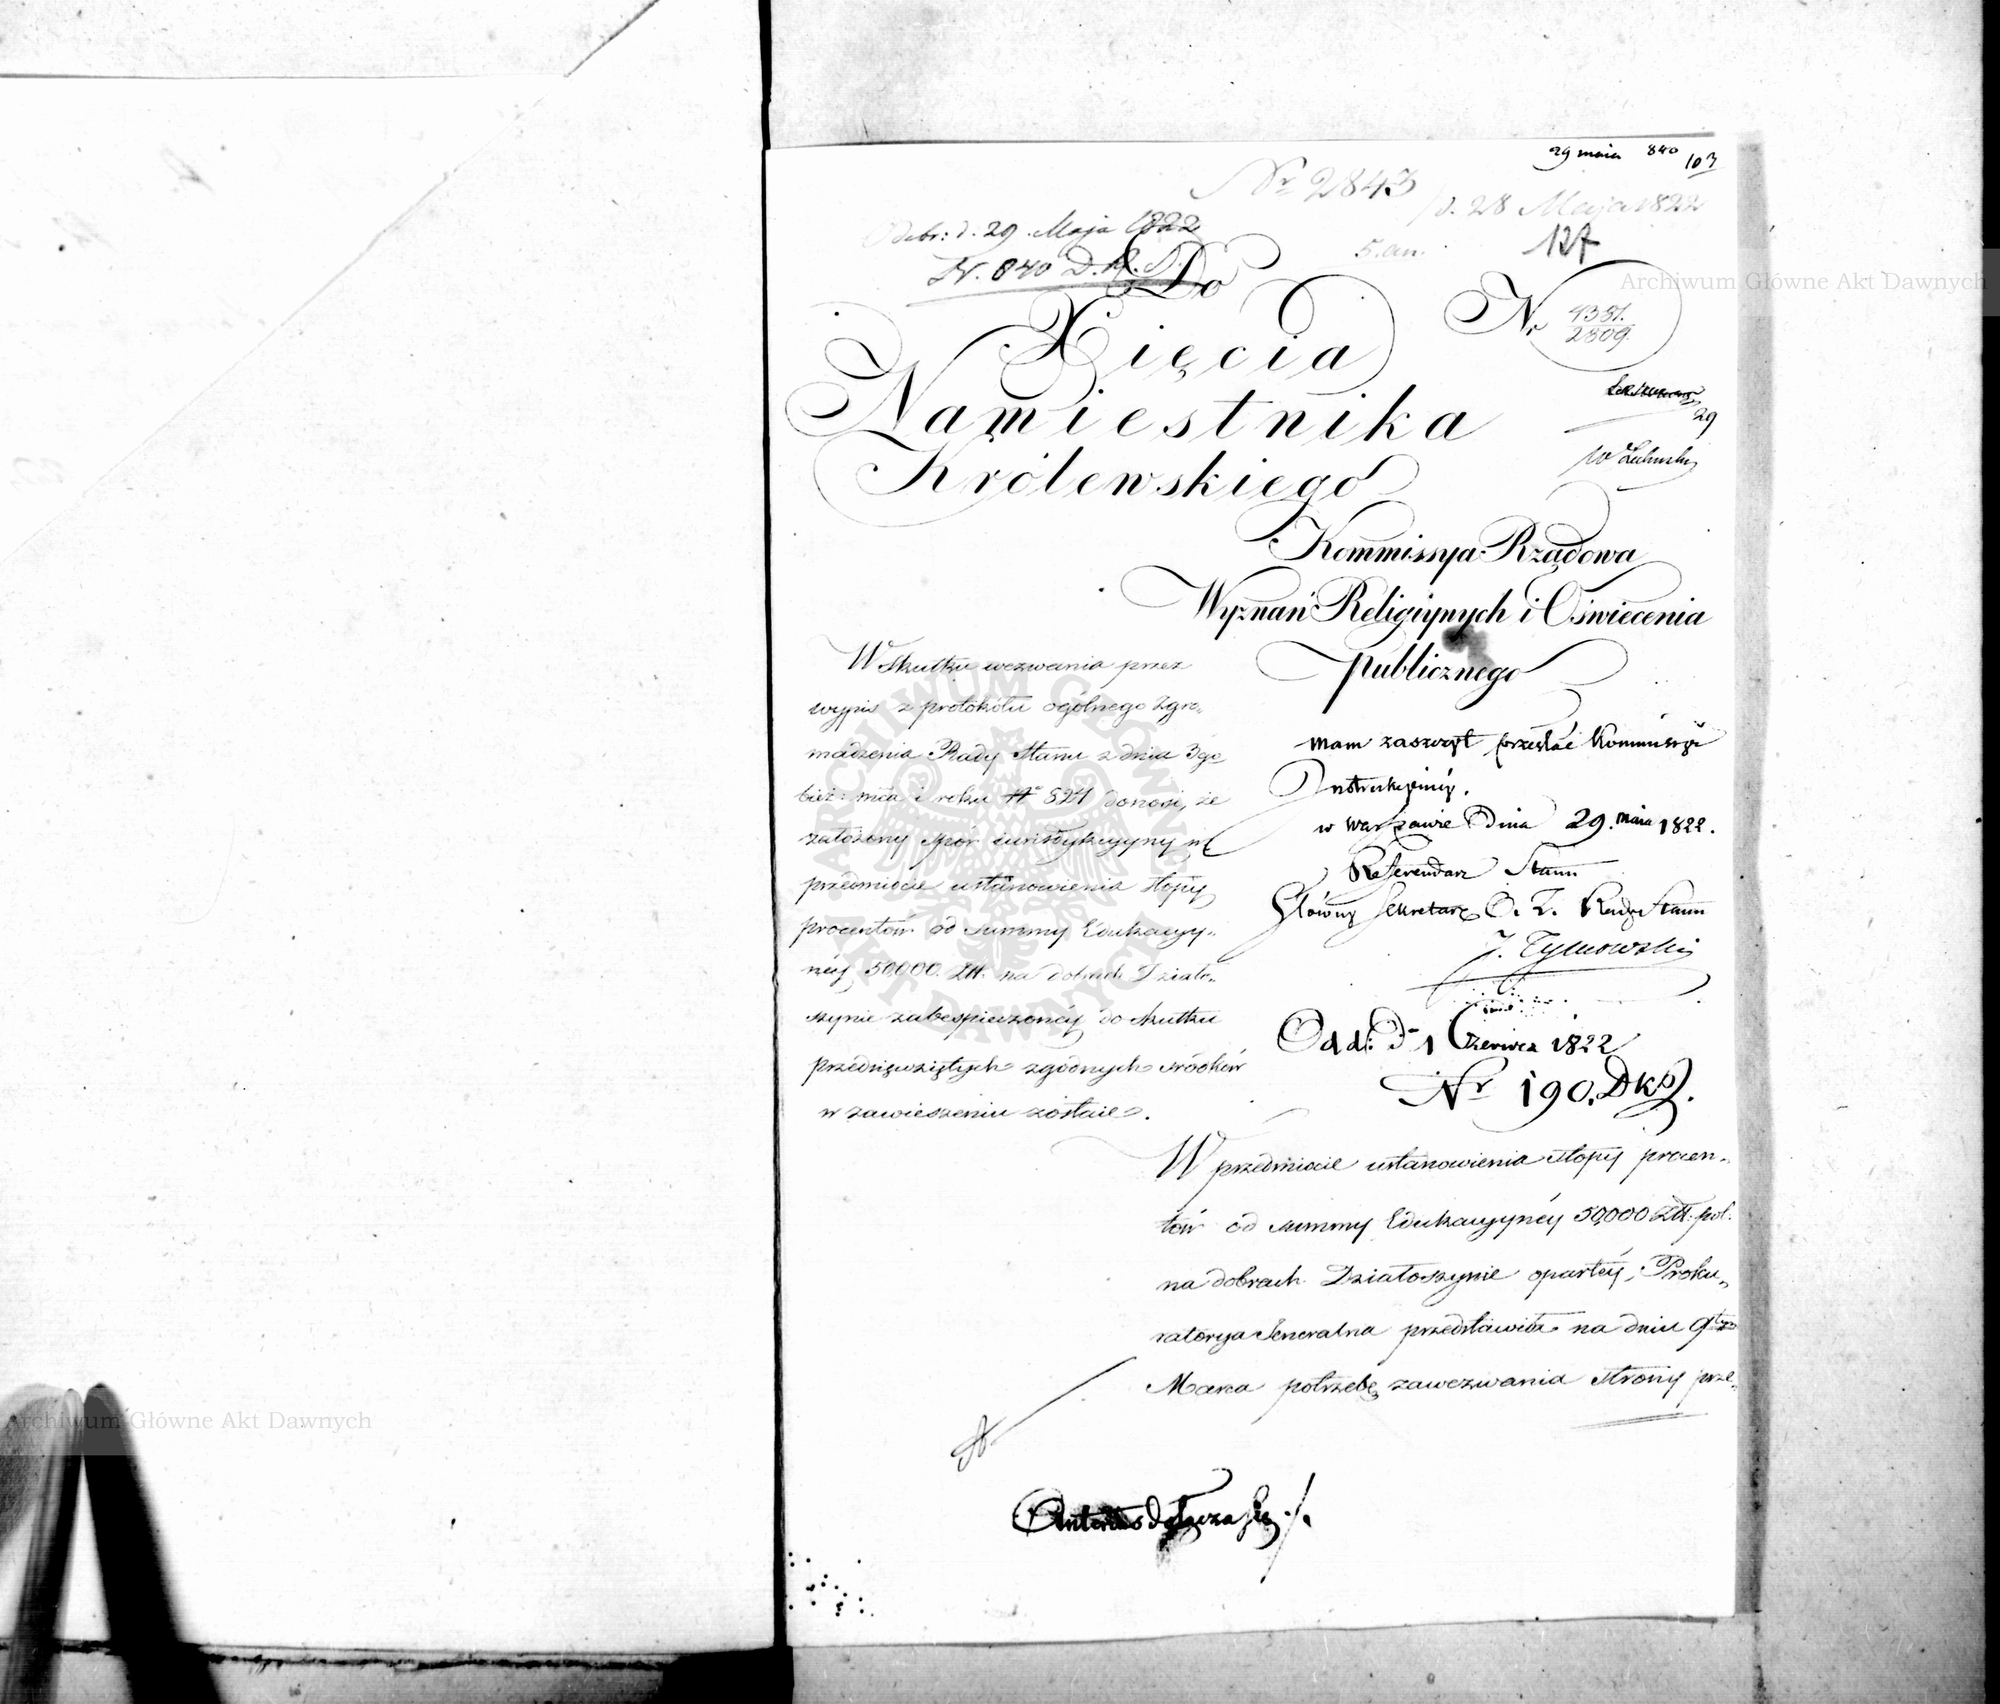 29 maia 840 103
Nr 2843
d. 28 Maja 1822
Odebr: d. 29. Maja 1822
Nr. 840 D.K.S.
5.an.
127
Archiwum Główne Akt Dawnych
Do
Xięcia
Namiestnika
Królewskiego
Nr 4351.
2809.
29
Kommissya Rządowa
Wyznań Religiynych i Oświecenia
Publicznego
W Skutku wezwania przez
wypis z protokółu ogólnego Zgro„
madzenia Rady Stanu z dnia 3go
bież: mca i roku No 524 donosi, że
założony spór iurisdykcyyny w
przedmiocie ustanowienia stopy
procentów od summy Edukacyy„
néy 50,000. Złł. na dobrach Działo„
szynie zabespieczonéy do skutku
przedsięwziętych zgodnych srodków
w zawieszeniu zostaie.
mam zaszczyt przesłać Kommissyi
Instrukcyinéy.
w Warszawie Dnia 29. maia 1822.
Referendarz Stanu
Główny Sekretarz O. Z. Rady Stanu
J. Tymowski
Odd: D 1 Czerwca 1822
Nr 190. Dks.
W przedmiocie ustanowienia stopy procen„
tów od summy Edukacyynéy 50,000 Złł: pol:
na dobrach Działoszynie opartéy, Proku„
ratorya Jeneralna przedstawiła na dniu 9
Marca potrzebę zawezwania strony prze„
Archiwum Główne Akt Dawnych
ARCHIWUM GŁÓWNE AKT DAWNYCH